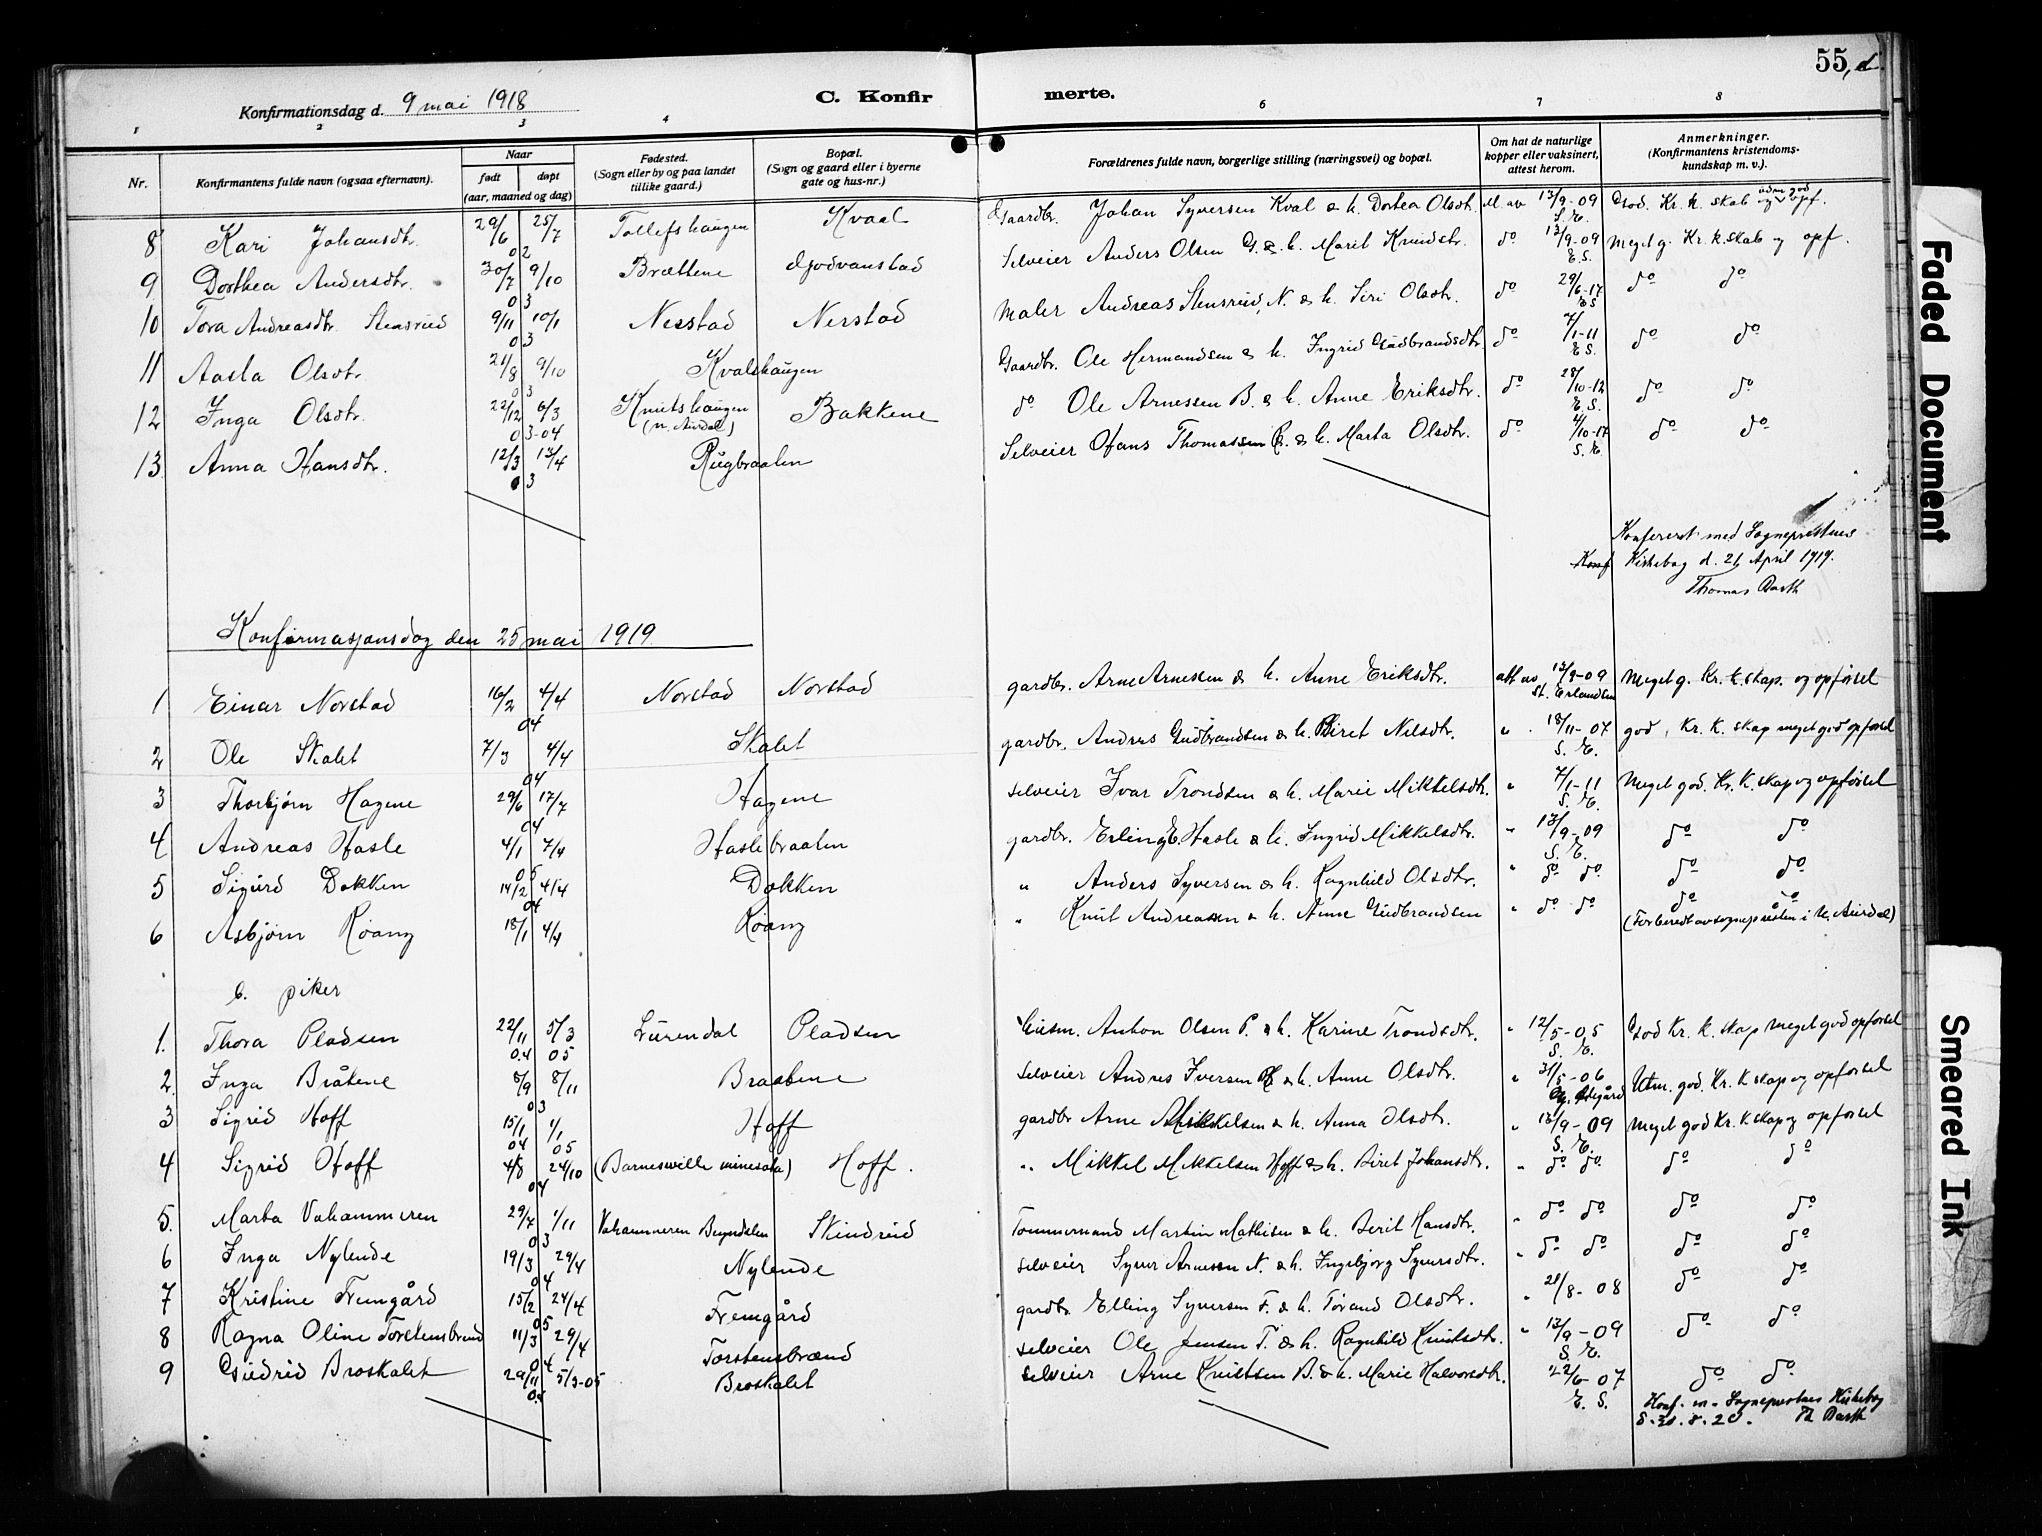 55, d.
Konfirmationsdag d. 9 mai 1918
C. Konfirmerte.
1 2 3 4 6 7 8
Nr.
Konfirmantens fulde navn (ogsaa efternavn).
Naar
født døpt
(aar, maaned og dag)
Fødested.
(Sogn eller by og paa landet
tillike gaard.)
Bopæl.
(Sogn og gaard eller i byerne
gate og hus-nr.)
Forældrenes fulde navn, borgerlige stilling (næringsvei) og bopæl.
Om hat de naturlige
kopper eller vaksinert,
attest herom.
Anmerkninger.
(Konfirmantens kristendoms-
kundskap m. v.).
8 Kari Johansdtr. 29/6 25/7 02 Tollefshaugen Kvaal Gaardbr. Johan Syversen Kval & h. Dorthea Olsdt. 13/9-09 S. E. God. Kr. k. skab og opf.
9 Dorthea Andersdtr. 30/7 9/10 03 Brættene Gjodvanstad Selveier Anders Olsen G. & h. Marit Knudstr. do 13/9-09 E. S. Meget g. Kr. k. skab og opf.
10 Tora Andreasdtr. Stensrud 9/11 10/1 03 Nerstad Nerstad Maler Andreas Stensrud, N. & h. Siri Olsdtr. do 29/6-17 E S do do
11 Aasta Olsdtr. 21/8 9/10 03 Kvalshaugen Gaardbr. Ole Hermandsen & h. Ingrid Gudbrandsdtr do 7/1-11 E. S. do do
12 Inga Olsdtr. 22/12 6/3 03-04 Knutshaugen (n. Aurdal) Bakkene do Ole Arnessen B. & h. Anne Eriksdtr. do 28/10-12 E. S. do do
13 Anna Hansdtr. 12/3 13/4 03 Rugbraaten Selveier Hans Thomassen R. & h. Marta Olsdtr. do 4/10-17 S. E. do do
Konfereret med Sogneprestens
Konf Kirkebog d. 21 April 1919.
Thomas Barth
Konfirmasjonsdag den 25 mai 1919
1 Einar Norstad 16/2 4/4 04 Norstad Norstad gardbr. Arne Arnessen & h. Anne Eriksdtr. att av 13/9-09 St. Erlandsen Meget g. Kr. k. skap. og opførsel
2 Ole Skalet 7/3 4/4 04 Skalet gardbr. Andres Gudbrandsen & h. Biret Nilsdtr. " 18/11-07 S. E. god, Kr. k. skap meget god opførsel
3 Thorbjørn Hagene 29/6 17/7 04 Hagene selveier Ivar Trondsen & h. Marie Mikkelsdtr. " 7/1-11 S. E. Meget god. Kr. k. skap og opførsel
4 Andreas Hasle 4/1 7/4 05 Haslebraaten gardbr. Erling E. Hasle & h. Ingrid Mikkelsdtr. " 13/9-09 S. E. do do
5 Sigurd Dokken 14/2 4/4 04 Dokken " Anders Syversen & h. Ragnhild Olsdtr. " do do do do
6 Asbjørn Roang 18/1 4/4 Roang " Knut Andreassen & h. Anne Gudbrandsen " do do do do
(Forberedt av sognepresten i N. Aurdal)
b. piker
1. Thora Pladsen 22/11 5/3 04 05 Lurendal Pladsen husm. Anton Olsen P. & h. Karine Trondsdtr. " 12/5-05 S. E. God Kr. k. skap meget god opførsel
2. Inga Bråtene 8/9 8/11 03 Braatene Selveier Andres Iversen & h. Anne Olsdtr. " 31/5-06 Ødegård Utm. god. Kr. k skap og opførsel
3 Sigrid Hoff 15/1 1/1 04 05 Hoff gardbr Arne Mikkelsen & h. Anna Olsdtr. " 13/9-09 S. E. Meget god Kr. k skap og opførsel
4 Sigrid Hoff 4/8 24/10 04 (Barnesville minesota) Hoff. " Mikkel Mikkelsen Hoff & h. Biret Johansdtr. " do do do do
5. Marta Vahammeren 29/7 1/11 03 Vahammeren Begndalen Skindrud Tømmermand Martin Mathisen & h. Berit Hansdtr. " do do do do
6 Inga Nylende 19/3 29/4 04 Nylende selveier Syver Arnesen N. & h. Ingebjørg Syversdtr. " do do do do
7 Kristine Fremgård 15/2 24/4 05 Fremgård gardbr. Elling Syversen F. & h. Torand Olsdtr. " 21/8-08 do do
8 Ragna Oline Torstensbrend 11/3 29/4 04 Torstensbrænd selveier Ole Jensen T. & h. Ragnhild Knutsdtr. " 13/9-09 S. E. do do
9 Gudrid Broskalet 29/11 5/3-05 04 Broskalet selveier Arne Knutsen B. & h. Marie Halvorsdtr. " 22/6-07 E. S. do do
Konf. m. Sogneprestens Kirkebog
Th Barth
Faded Document
Smeared Ink